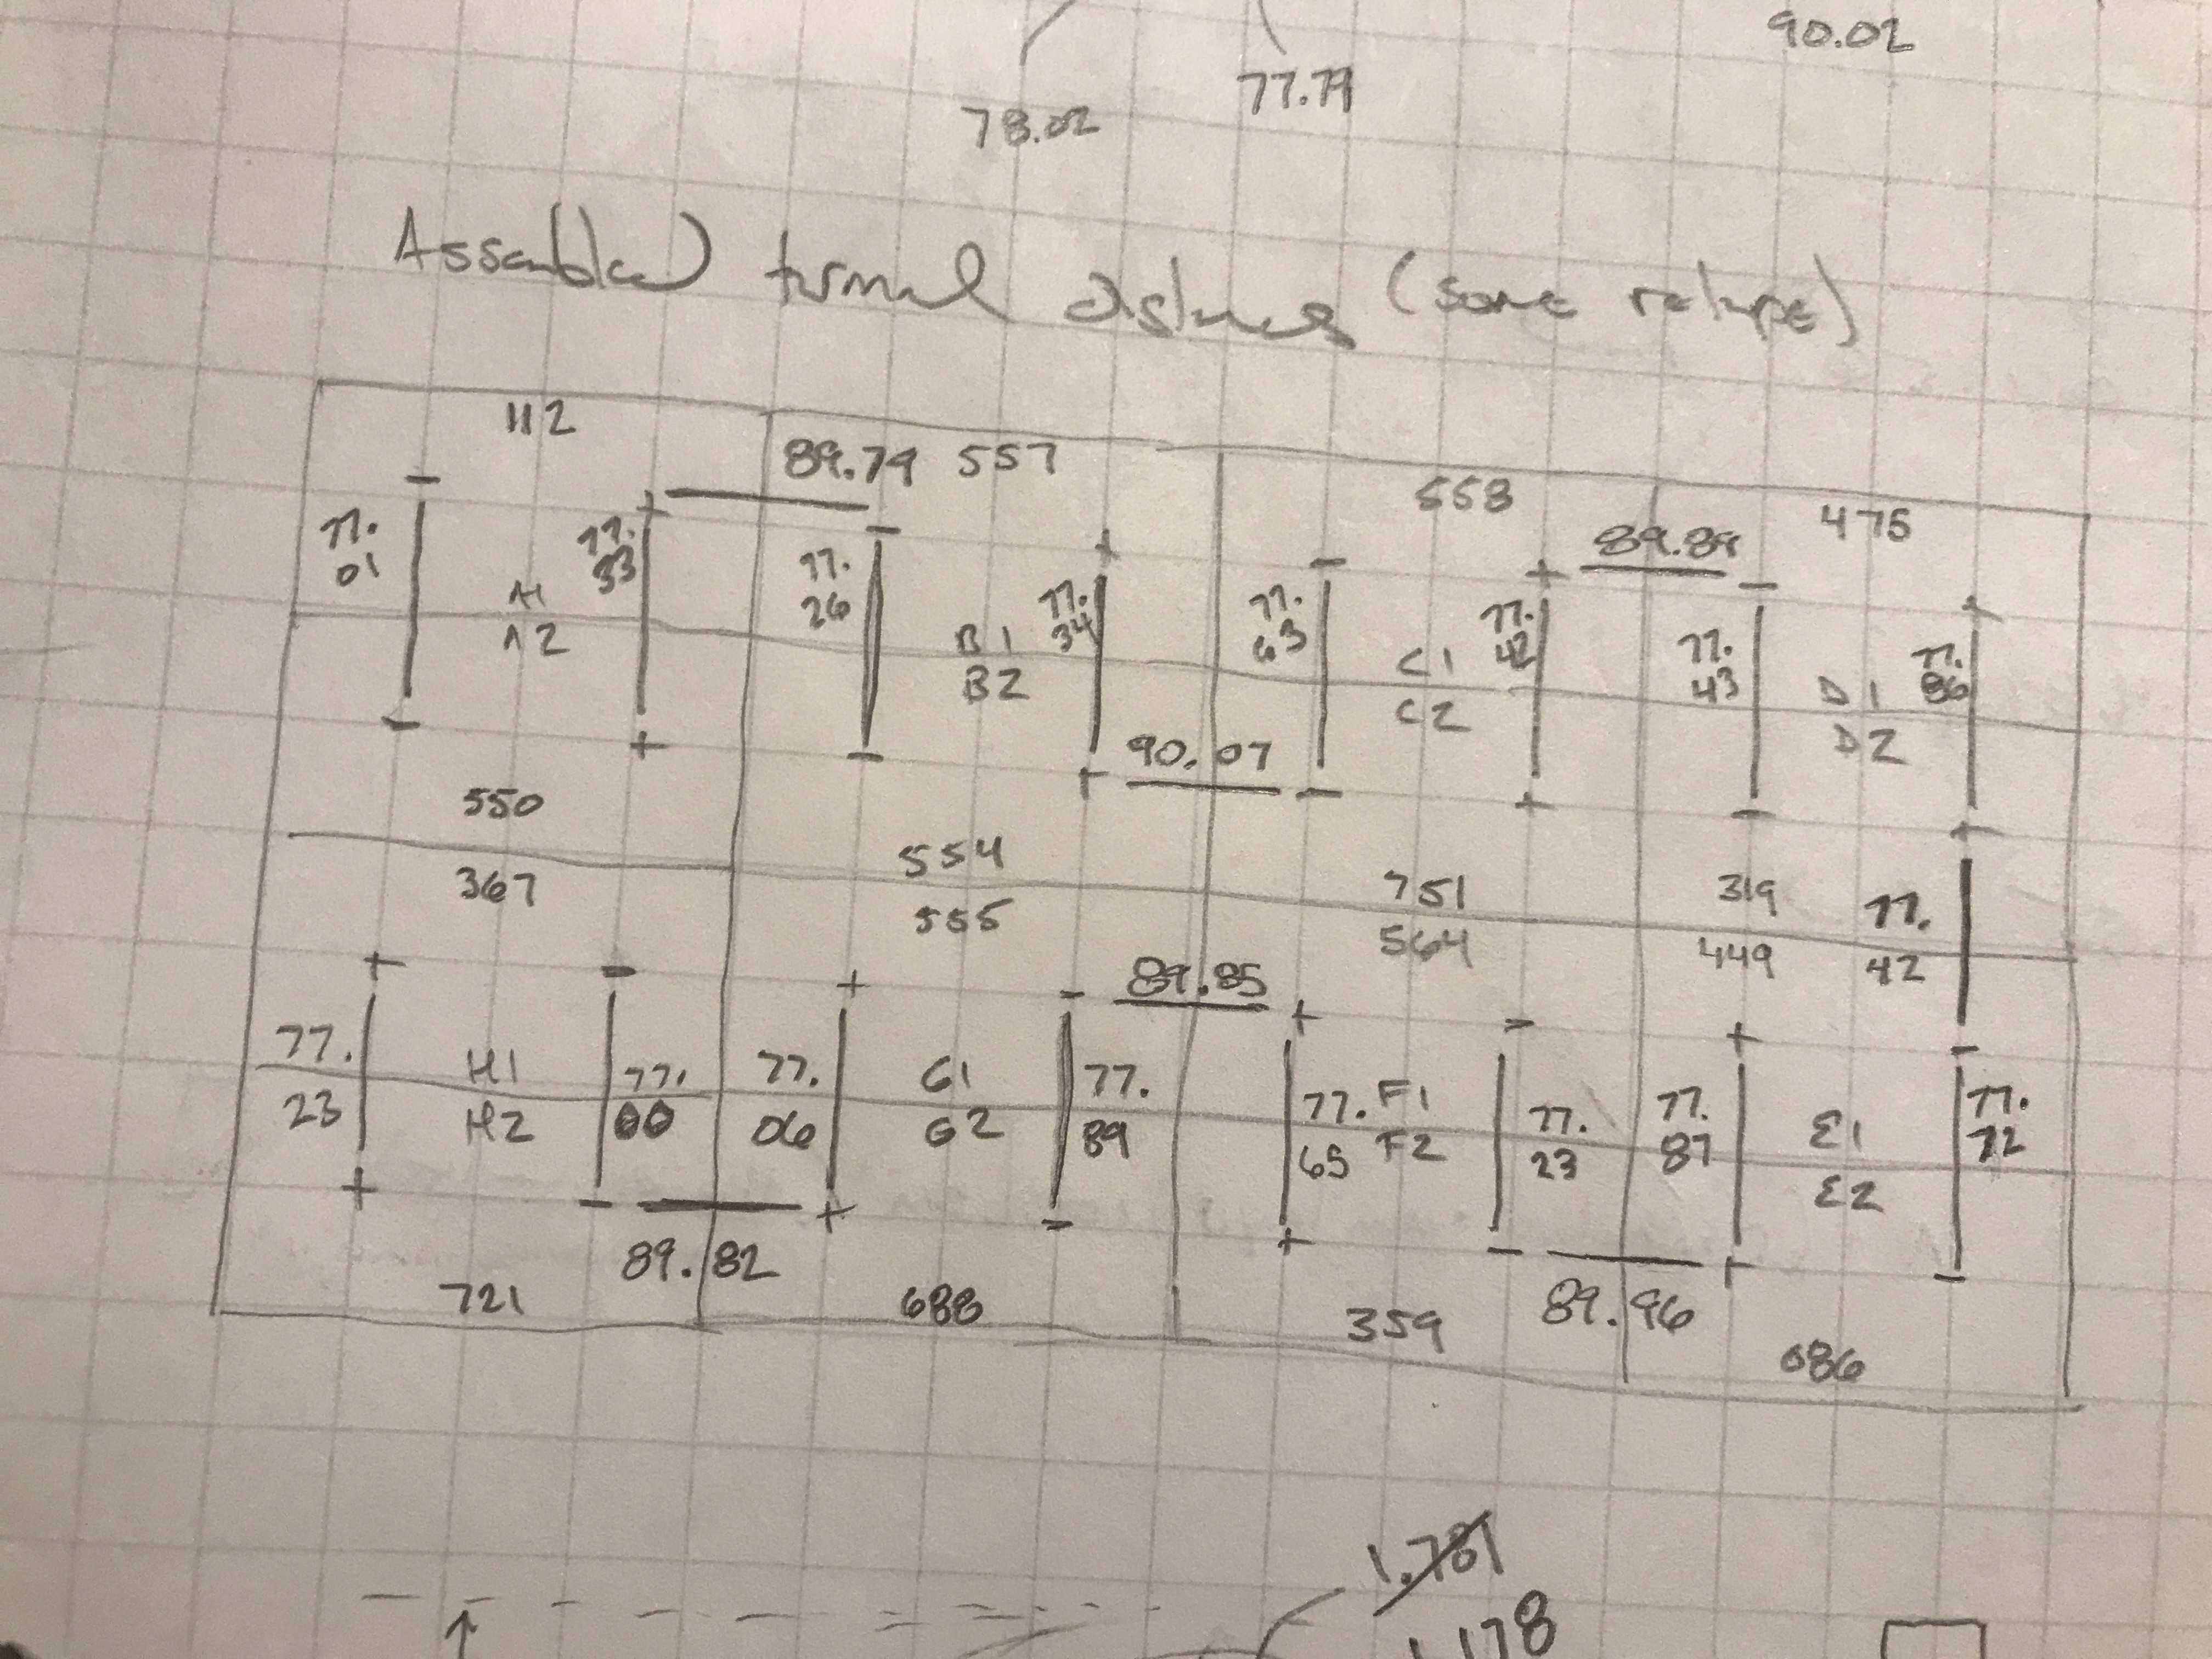 90.02
77.79
78.02
Assembled terminal distances (some retape)
112
89.79 557
558
475
89.89
77.
01
77.
33
77.
26
77.
34
77.
63
77.
42
77.
43
77.
86
A1
A2
B1
B2
C1
C2
D1
D2
90.07
550
554
751
319
367
555
564
449
77.
42
89.85
77.
23
H1
H2
77.
00
77.
06
G1
G2
77.
89
77.
65
F1
F2
77.
23
77.
87
E1
E2
77.
72
89.82
89.96
721
688
359
686
1.781
1.178